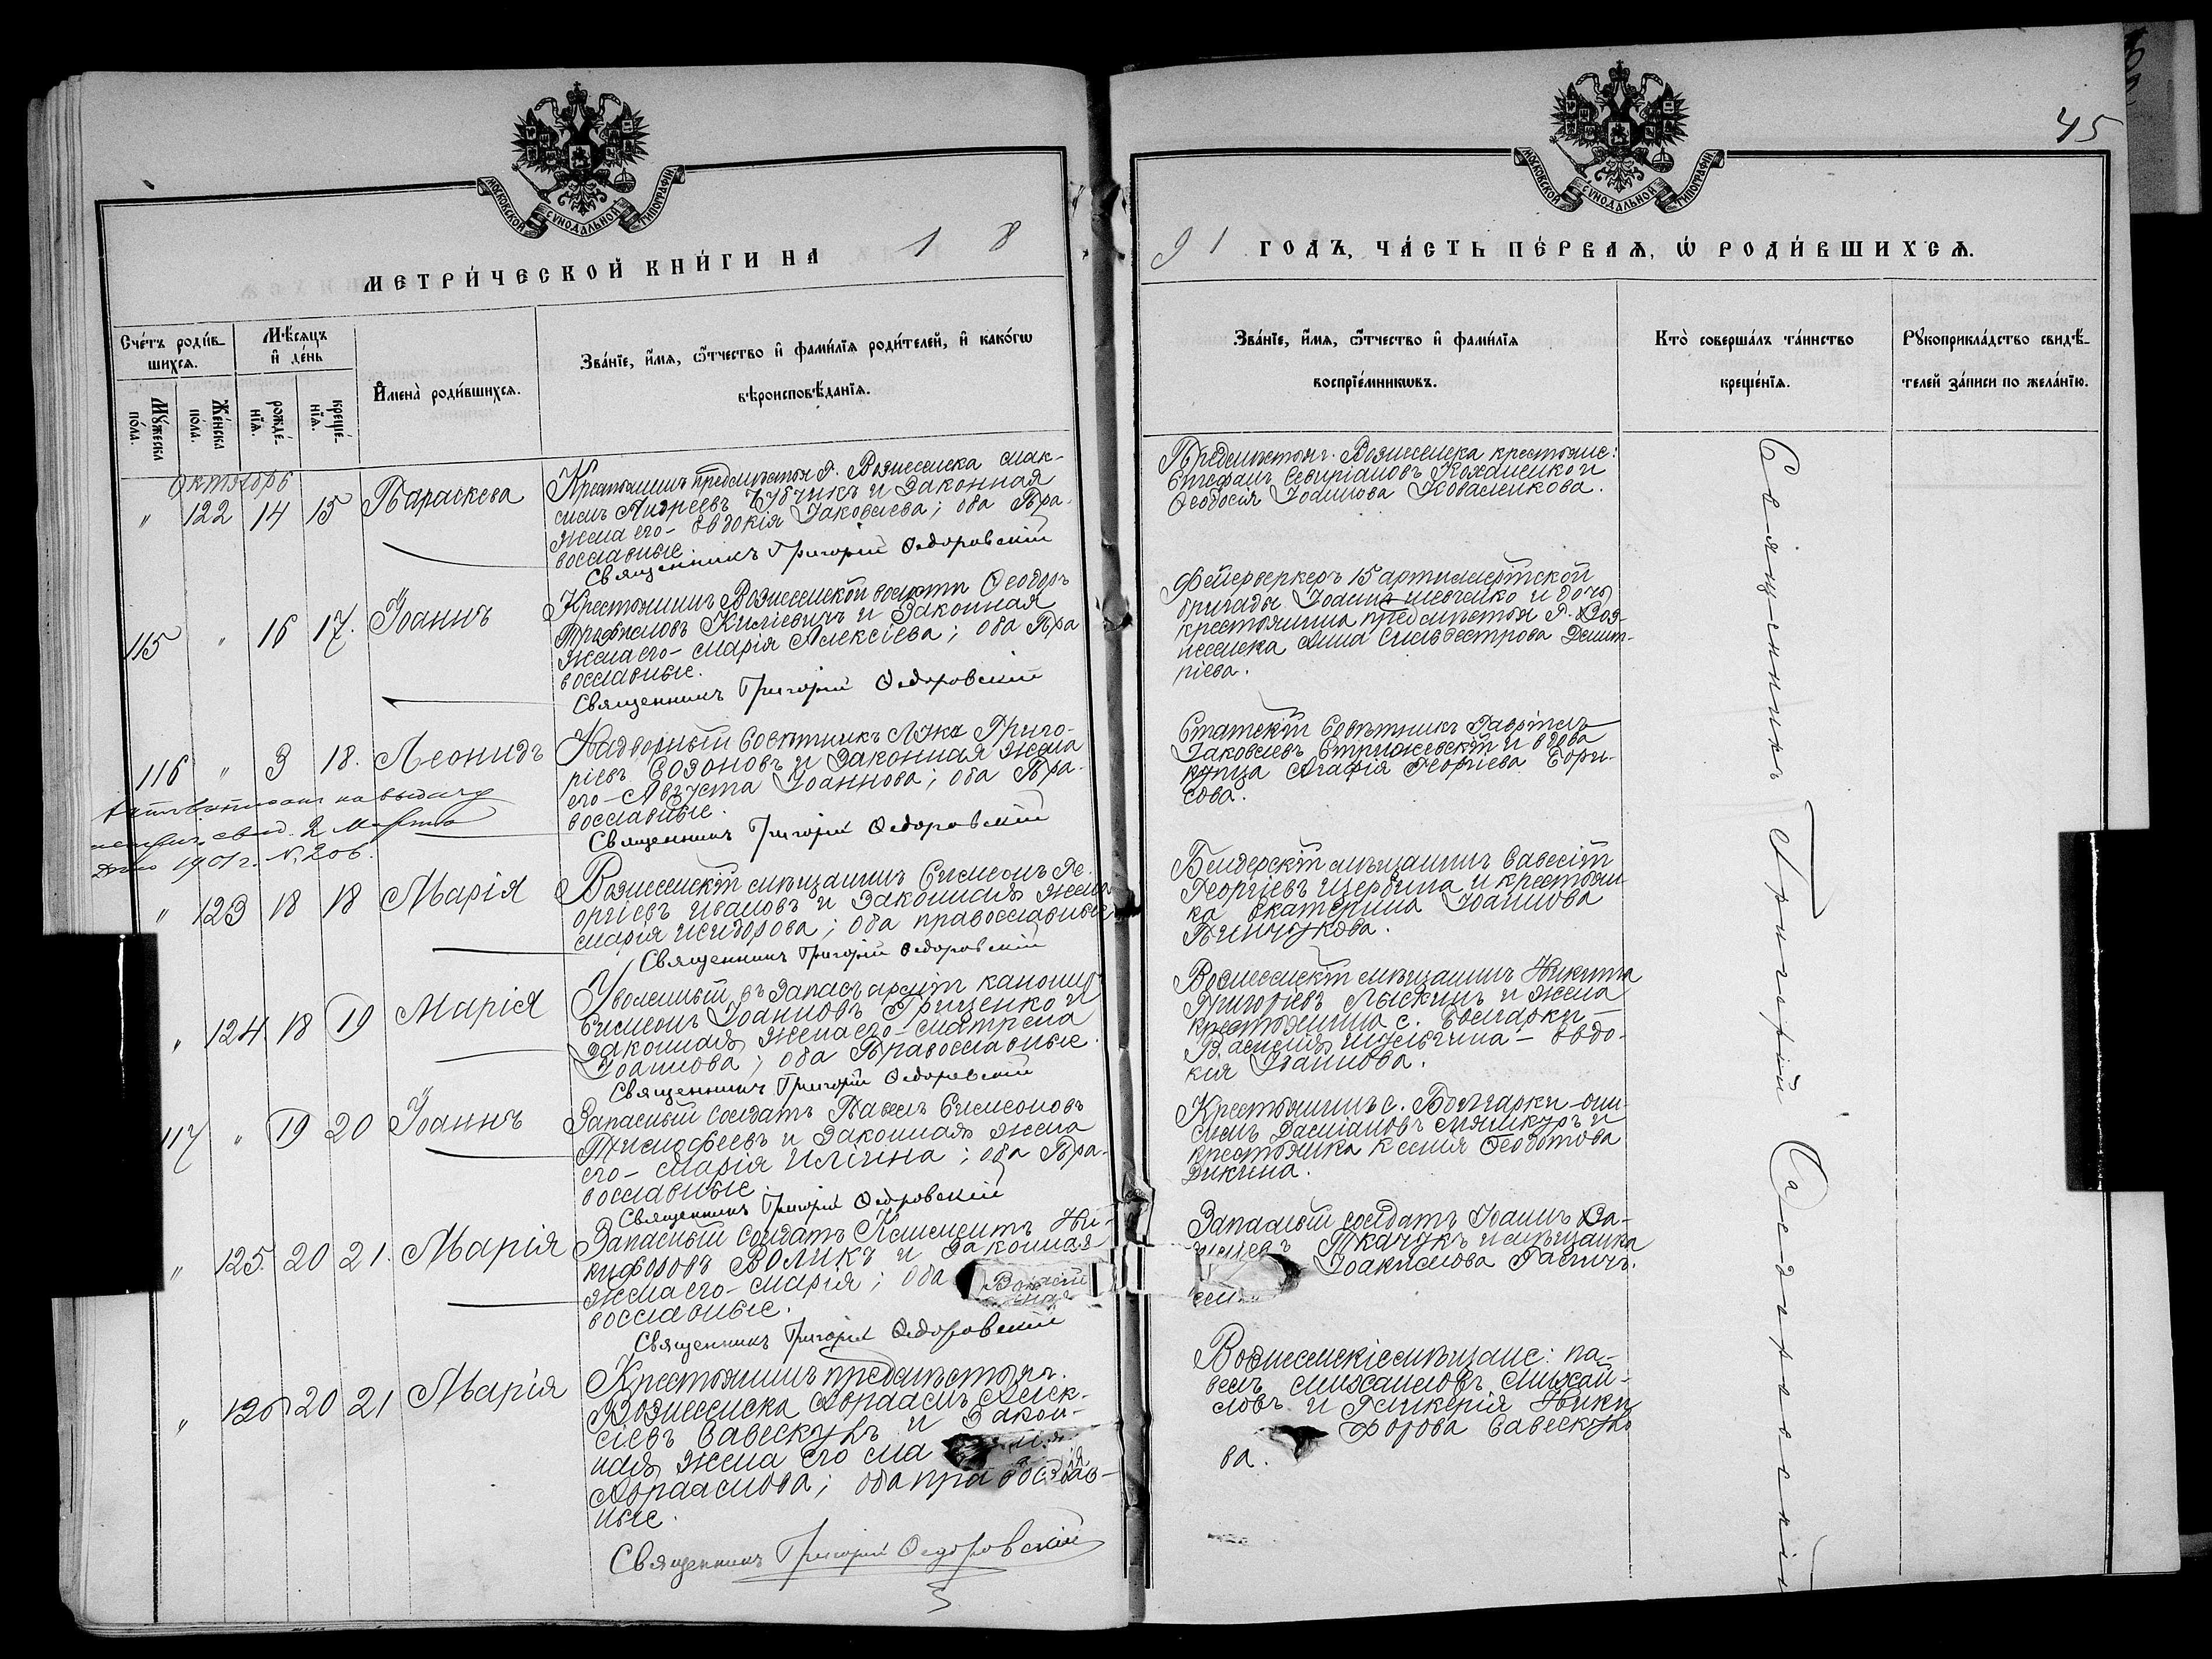 45
МОСКОВСКОЙ СѴНОДАЛЬНОЙ ТИПОГРАФІИ
МОСКОВСКОЙ СѴНОДАЛЬНОЙ ТИПОГРАФІИ
МЕТРИ́ЧЕСКОЙ КНИ́ГИ НА 18
91 ГОДЪ, ЧА́СТЬ ПЕ́РВАѦ, Ѡ РОДИ́ВШИХСѦ.
Сче́тъ роди́в-
шихсѧ.
Мꙋ́жеска
по́ла.
Же́нска
по́ла.
Мѣ́сѧцъ
и҆ де́нь
рожде́-
нїѧ.
креще́-
нїѧ.
И҆мена̀ роди́вшихсѧ.
Зва́нїе, и҆́мѧ, ѻ҆́тчество и҆ фами́лїѧ роди́телей, и҆ како́гѡ
вѣроисповѣ́данїѧ.
Зва́нїе, и҆́мѧ, ѻ҆́тчество и҆ фами́лїѧ
воспрїе́мникѡвъ.
Кто̀ соверша́лъ та́инство
креще́нїѧ.
Рꙋкоприкла́дство свидѣ́-
телей за́писи по жела́нїю.
Октябрь
" 122 14 15 Параскева
Крестьянинъ предмѣстья г. Вознесенска Мак-
симъ Андреевъ Чубчикъ и законная
жена его - Евдокія Іаковлева; оба Пра-
вославные
Священникъ Григорій Ѳедоровскій
Предмѣстья г. Вознесенска крестьяне:
Стефанъ Севиріановъ Коханенко и
Ѳеодосія Іоаннова Коваленкова.
115 " 16 17. Іоаннъ
Крестьянинъ Вознесенской волости Ѳеодоръ
Трофимовъ Киліевичъ и законная
жена его - Марія Алексіева; оба Пра
вославные.
Священникъ Григорій Ѳедоровскій
Фейерверкеръ 15 артиллерійской
бригады Іоаннъ Шевченко и дочь
крестьянина предмѣстья г. Воз-
несенска Анна Сильвестрова Димит-
ріева.
116 " 3 18. Леонидъ
Надворный Совѣтникъ Лука Григо-
ріевъ Созоновъ и законная жена
его - Августа Іоаннова; оба Пра-
вославные.
Священникъ Григорій Ѳедоровскій
Статскій Совѣтникъ Гавріилъ
Іаковлевъ Стрижевскій и вдова
купца Агафія Георгіева Бори-
сова.
на выдачу
метрич. свид. 2 Марта
1901 г. N. 206.
" 123 18 18 Марія
Вознесенскій мѣщанинъ Симеонъ Ге-
оргіевъ Ивановъ и законная жена
Марія Исидорова; оба православные
Священникъ Григорій Ѳедоровскій
Бендерскій мѣщанинъ Савелій
Георгіевъ Щербина и крестьян-
ка Екатерина Іоаннова
Пинчукова.
" 124 18 19 Марія
Уволенный въ запасъ арміи канониръ
Симеонъ Іоанновъ Грищенко и
законная жена его - Матрена
Іоаннова; оба Православные.
Священникъ Григорій Ѳедоровскій
Вознесенскій мѣщанинъ Никита
Григорьевъ Лыскинъ и жена
крестьянина с. Болгарки -
Василія Шульгина - Евдо-
кія Іоаннова.
117 " 19 20 Іоаннъ
Запасный солдатъ Павелъ Симеоновъ
Тимофеевъ и законная жена
его - Марія Илiина; оба Пра-
вославные.
Священникъ Григорій Ѳедоровскій
Крестьянинъ с. Болгарки - Они-
симъ Даміановъ и
крестьянка Ксенія Ѳеодотова
Дикина.
" 125. 20 21. Марія
Запасный солдатъ Климентъ Ни-
кифоровъ Воликъ и законная
жена его - Марія; оба
вославные.
Священникъ Григорій Ѳедоровскій
Запасный солдатъ Іоаннъ Ва-
Ткачукъ и мѣщанка
Іоакимова
" 126 20 21 Марія
Крестьянинъ предмѣстья г.
Вознесенска Авраамъ Алек-
сіевъ Савескулъ и закон-
ная жена его Ма
Авраамова; оба правослaв-
ные.
Священникъ Григорій Ѳедоровскій
Вознесенскіе мѣщане: Па-
велъ Михаиловъ Михай-
ловъ и Гликерія Ники-
форова Савескуло
ва.
Священникъ Григорій Ѳедоровскій